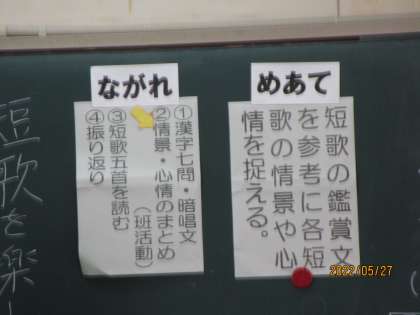 めあて
短歌の鑑賞文
を参考に各短
歌の情景や心
情を捉える。
ながれ
①漢字七問・暗唱文
②情景・心情のまとめ
（班活動）
③短歌五首を読む
④振り返り
短歌を楽
2022/05/27